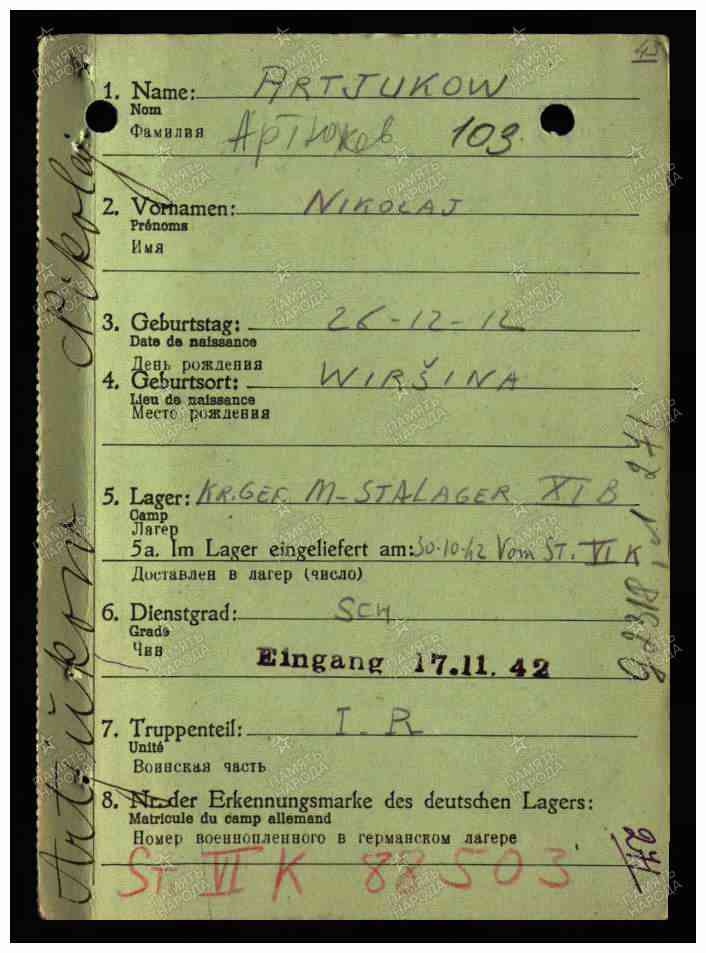 43
1. Name: ARTJUKOW
Nom
Фамилия Артюков 103.
2. Vornamen: NIKOLAJ
Prénoms
Имя
3. Geburtstag: 26-12-12
Date de naissance
День рождения
4. Geburtsort: WIRŠINA
Lieu de naissance
Место рождения
5. Lager: KR.GEF. M-STALAGER XI B
Camp
Лагер
5a. Im Lager eingeliefert am: 30-10-42 Vom ST. VI K
Доставлен в лагер (число)
6. Dienstgrad: SCH
Grade
Чин
Eingang 17.11.42
7. Truppenteil: I. R
Unité
Воинская часть
8. Nr. der Erkennungsmarke des deutschen Lagers:
Matricule du camp allemand
Номер военнопленного в германском лагере
ST VI K 88503
Artjukow Nikolaj
271
ПАМЯТЬ НАРОДА